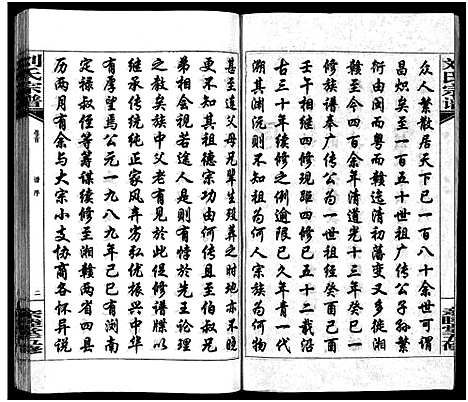 刘氏宗谱
众人繁散居天下已一百八十余世可谓
昌炽矣至一百五十世祖广传公子孙繁
衍由闽而粤而赣迨清初藩变又多徙湘
赣至今四百余年清道光十三年癸巳
族谱奉广传公为始祖经癸酉己巳
壬午相继续修四次距今五十二载沿
古三十年续修之例逾限已久年青一代
溯其渊沅则不知祖为何人宗族为何物
甚至连父母兄辈生殁葬之时地亦不晓
更不知其祖德宗功由何传且至伯叔兄
弟相会视若途人是则有悖于先王论理
之教矣族中父老有见於此促修谱牒以
继承传统纯正家风弃劣私优振兴
有厚望焉公元一九八九年己巳有浏南
定禄叔侄等筹谋续修至湘赣两省四县
历两月有余与大宗小支协商各怀我悦
刘氏宗谱
卷首
谱序
二